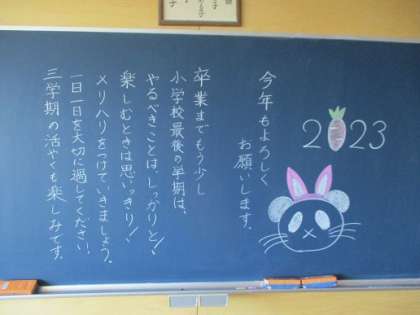 2023
今年もよろしく
お願いします。
卒業までもう少し
小学校最後の学期は、
やるべきことは、しっかりと!
楽しむときは思いっきり!
メリハリをつけていきましょう。
一日一日を大切に過してください。
三学期の活やくも楽しみです。